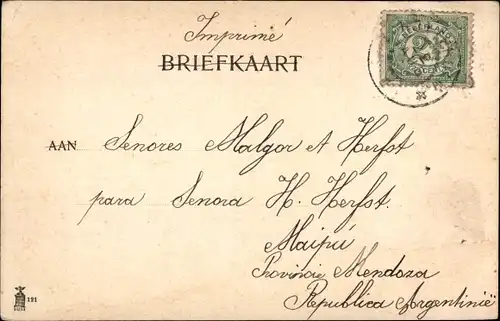 Imprimé
BRIEFKAART
AAN Senores Malgor et Herfst
para Senora H. Herfst.
Maipú
Provincie Mendoza
Republica Argentinië
121